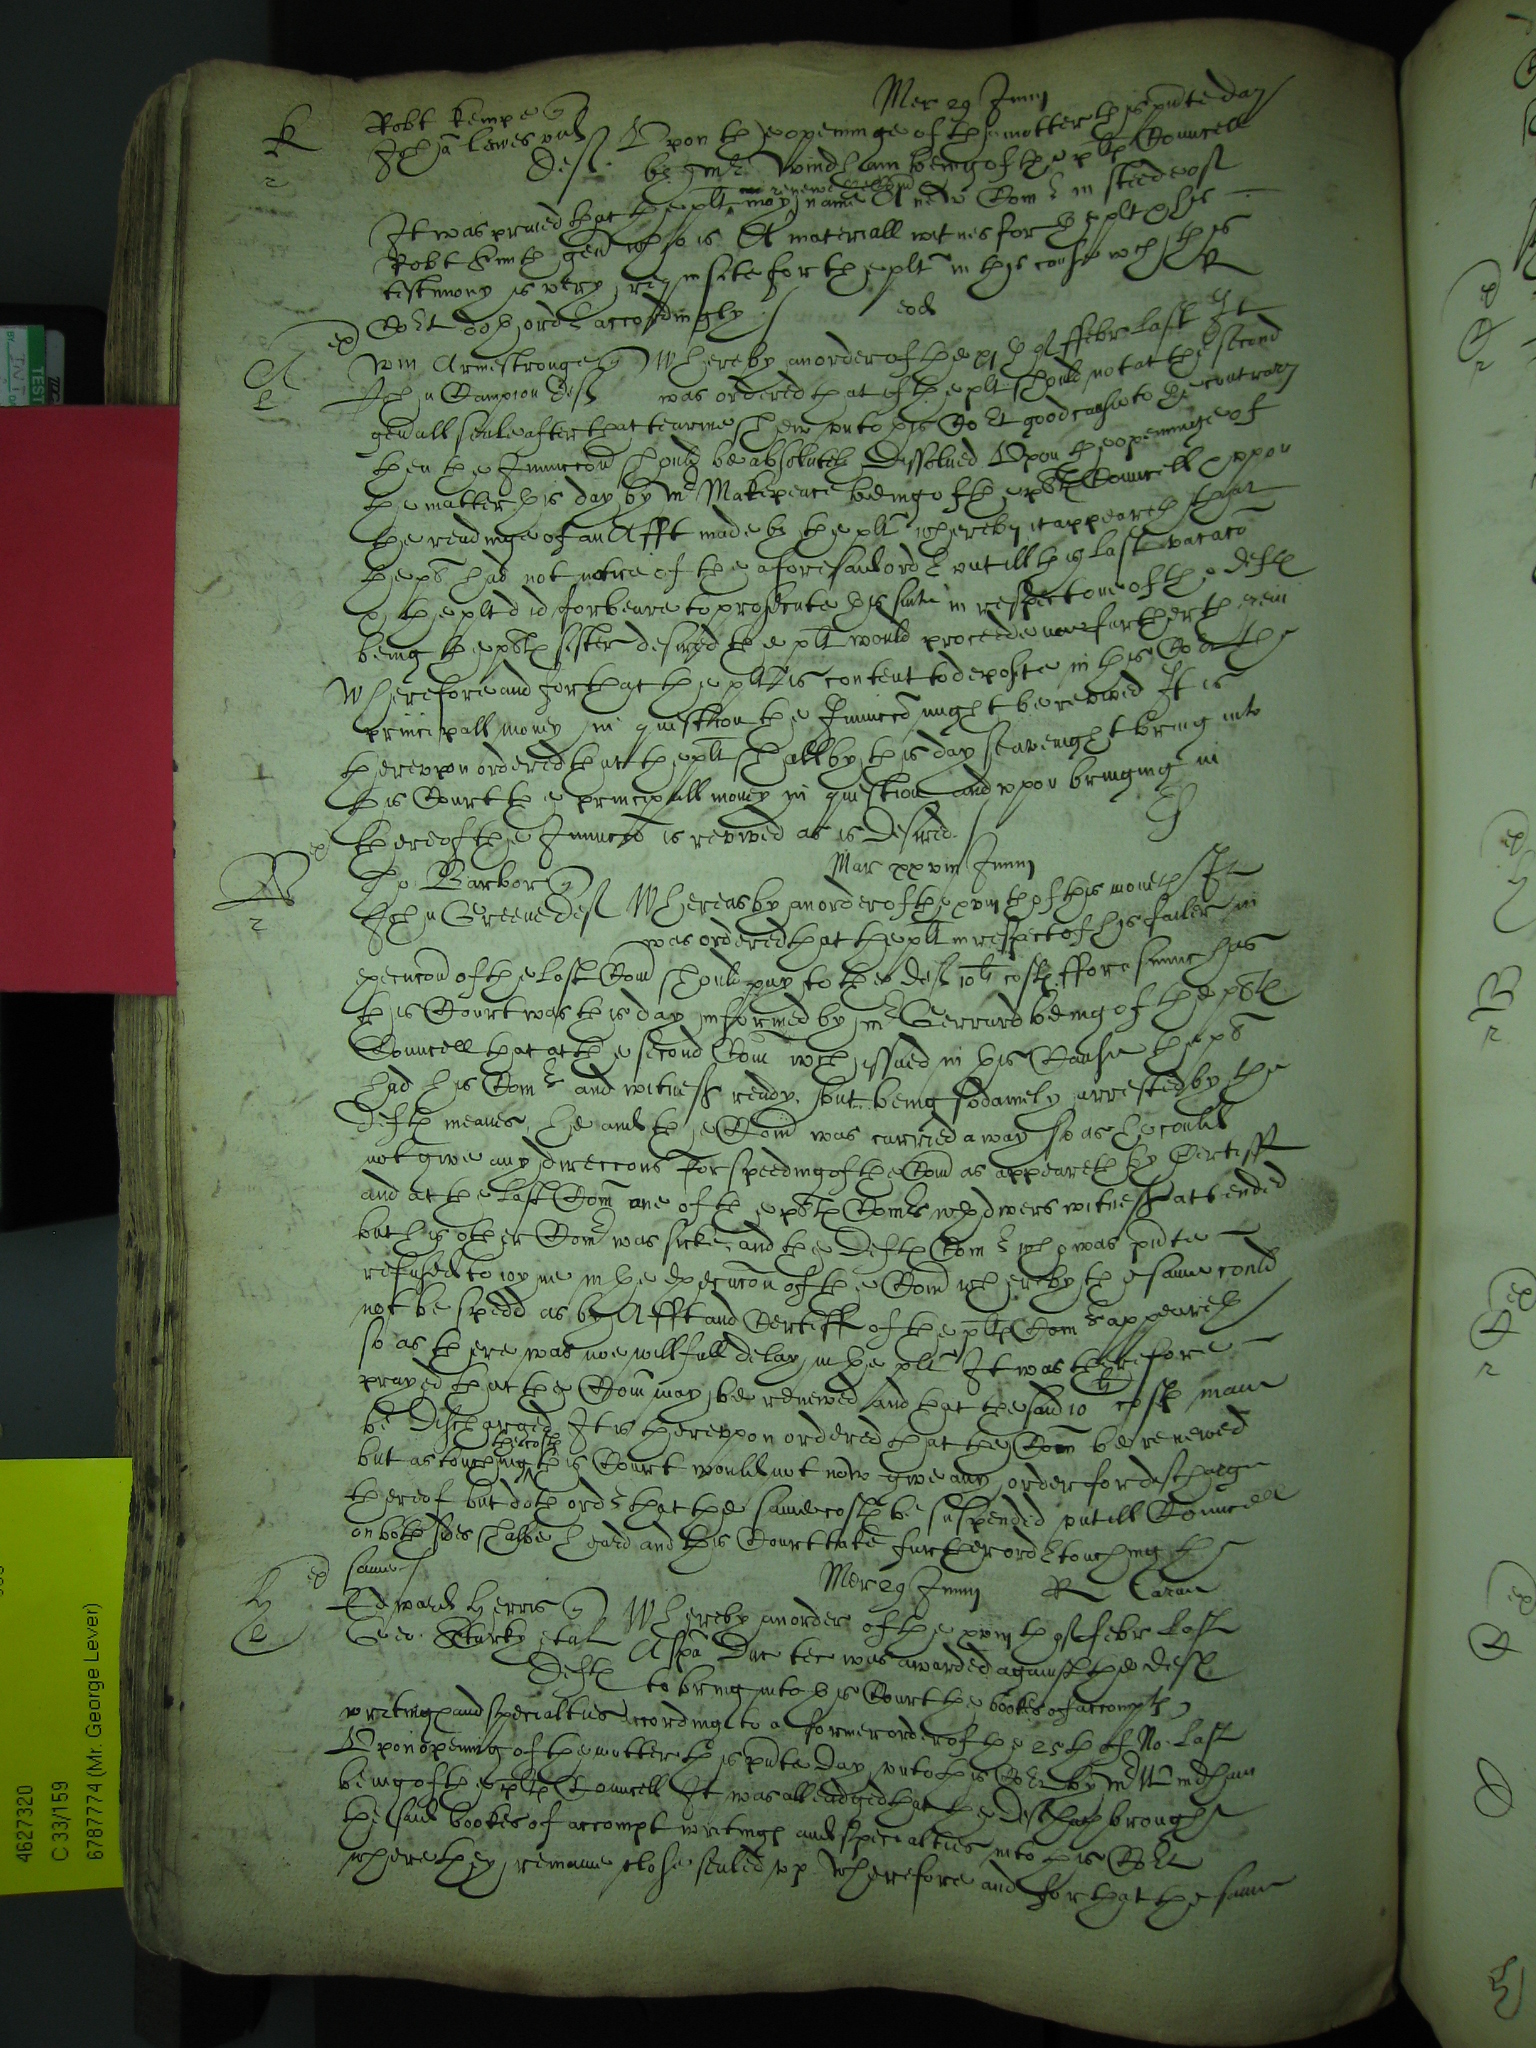 Mer 29 Junij
K
2
Robt Kempe q
Joha Lewes vid
deft
Upon the openinge of the matter this pnte day
by mr Windham being of the plts Councell
It was praied that the plt may renewe his Com name A new Comr in steede of
Robt Smith gen who is A materiall witnes for the plt & his
testimony is very requisite for the plt in this cause wch this
Cort doth order accordingly / eod R
A
ex
Wm Armestronge q Whereby an order of the xjth of ffebr last It
John Campion deft was ordered that if the plt should not at the second
genall seale after that tearme shew unto this Cort good cause to the contrary
then the Iniunccon should be absolutely dissolved Upon the openinge of
the matter this day by mr Makepeace beeing of the plts Councell & uppon
the readinge of an Afft made by the plt whereby it appeareth that
the plt had not notice of the aforesaid order untill this last vacacon
& the plt did forbeare to prosecute his suite in respect one of the defts
being the plts sister desired the plt would proceede noe further therein
Wherefore and for that the plt is content to deposite in this Cort the
principall money in question the Iniunccon might be revived It is
thereupon ordered that the plt shall by this day seavenight bring into
this Court the principall money in question and upon bringing in
thereof the Iniunccon is revived as is desired /
Mar xxviij Junij
B
ex
2
Tho Barbor q
John Greene deft Whereas by an order of the xviijth of this moneth It
was ordered that the plt in respect of his failer in
execucon of the last Com should pay to the deft 10li costs fforasmuch as
this Court was this day informed by mr Gerrard being of the plts
Councell that at the second Com wch issued in this Cause the plt
had his Comr and witnesses ready, but being sodainely arrested by the
defts meanes he and the Com was carried away so as he could
not give any direccons for speeding of the Com as appeareth by Certiff
and at the last Com one of the plts Comrs wth divers witnesses attended
but his other Comr was sicke, and the defts Comr who was pnte
refused to ioyne in the execucon of the Com whereby the same could
not be spedd as by Afft and Certiff of the plts Comr appeareth /
so as there was noe willfull delay in the plt It was therefore
prayed that the Com may be renewed and that the said 10li costs maie
be discharged It is thereuppon ordered that the Com be renewed
but as touching the costs this Court would not now give any order for discharge
thereof but doth order that the same costs be suspended untill Councell
on both sides shalbe heard and this Court take further order touching the
same /
Mer 29 Junij
H
ex
Edward Herris q
Geo: Sturky et al
Defts
Whereby an order of the xviijth of febr last
A spa Duc tec was awarded against the deft
to bring into this Court the bookes of accompts
writings and specialties according to a former order of the 25th of No: last
Upon opening of the matter this pnte day unto this Cort by mr Windham
being of the plts Councell It was alleadged that the deft hath brought
the said bookes of accompt writings and specialties into this Cort
where they remaine close sealed up. Wherefore and for that the same
4627320
C 33/159
6787774 (Mr. George Lever)
TEST